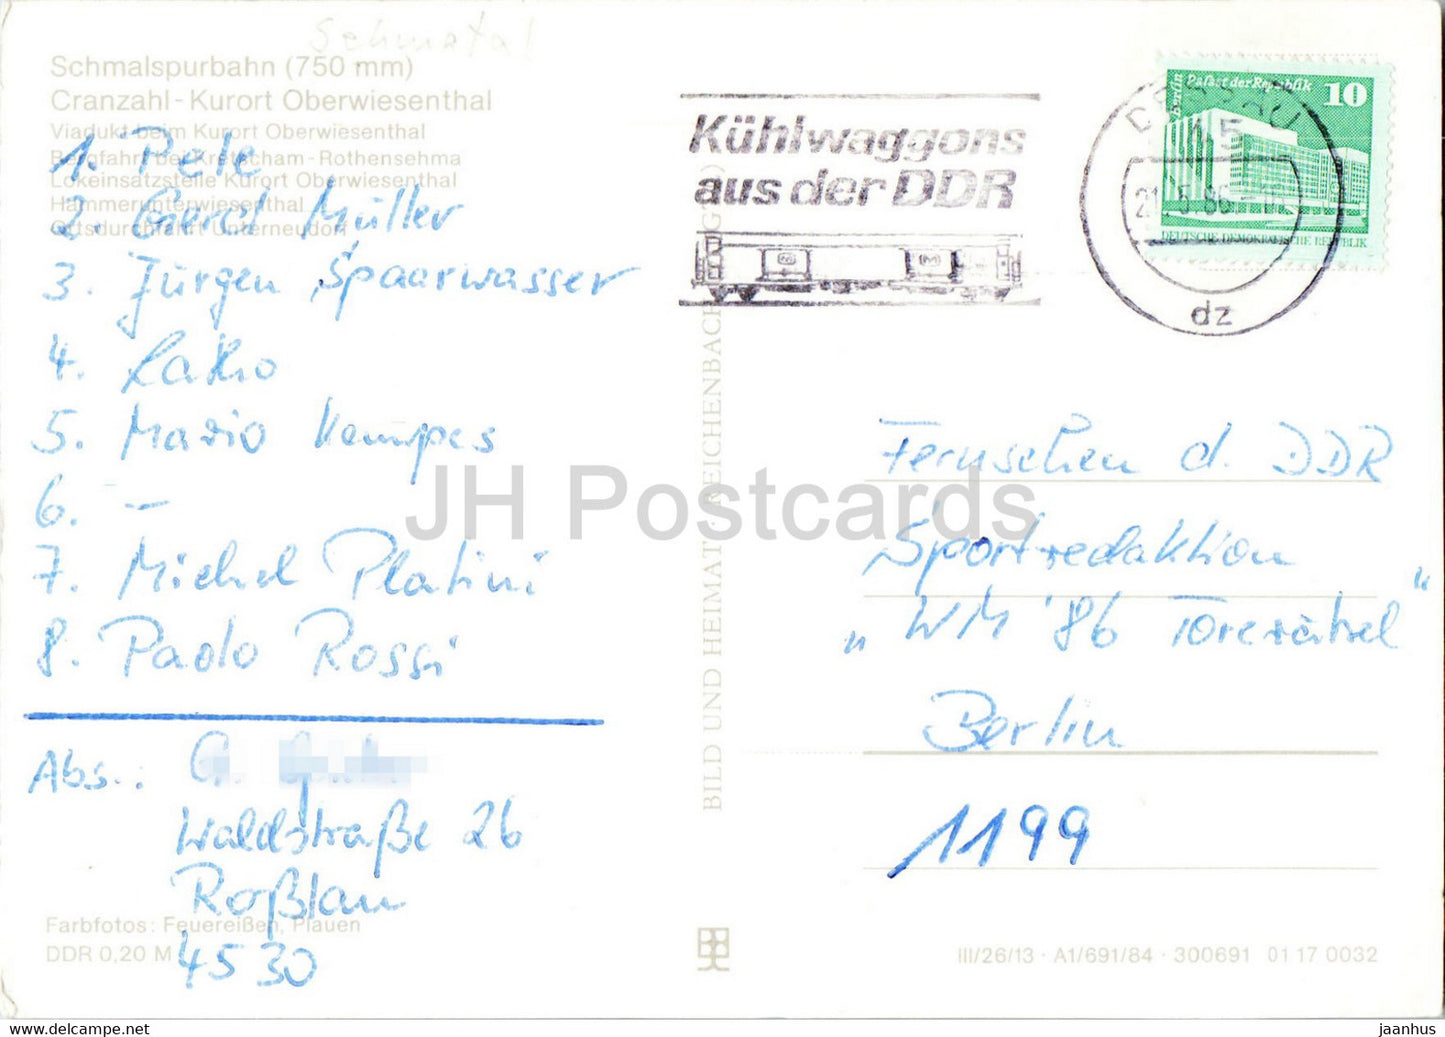 Schmatal
Schmalspurbahn (750 mm)
Cranzahl - Kurort Oberwiesenthal
Viadukt beim Kurort Oberwiesenthal
Bergfahrt bei Kretscham - Rothensehma
Lokeinsatzstelle Kurort Oberwiesenthal
Hammerunterwiesenthal
Ortsdurchfahrt Unterneudorf
1. Pele
2. Gerd Müller
3. Jürgen Sparwasser
4. Latho
5. Mario Kempes
6. –
7. Michel Platini
8. Paolo Rossi
Abs.:
Waldstraße 26
Roßlau
4530
Farbfotos: Feuereißen, Plauen
DDR 0,20 M
BILD UND HEIMAT REICHENBACH (VOGTL)
Kühlwaggons
aus der DDR
DESSAU
45
21.5.86
dz
Berlin Palast der Republik 10
DEUTSCHE DEMOKRATISCHE REPUBLIK
Fernsehen d. DDR
Sportredaktion
„WM '86 Torerätsel“
Berlin
1199
III/26/13 · A1/691/84 · 300691 01 17 0032
JH Postcards
www.delcampe.net
jaanhus